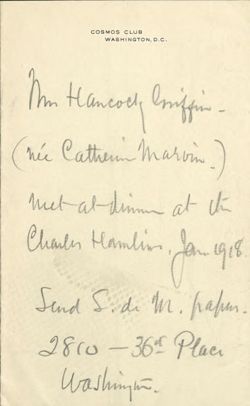 COSMOS CLUB
WASHINGTON, D.C.
Mrs Hancock Griffin.
(née Catherine Marvin.)
Met at dinner at the
Charles Hamlins, Jan 1918.
Send S. de M. papers.
2810 — 36th Place
Washington.